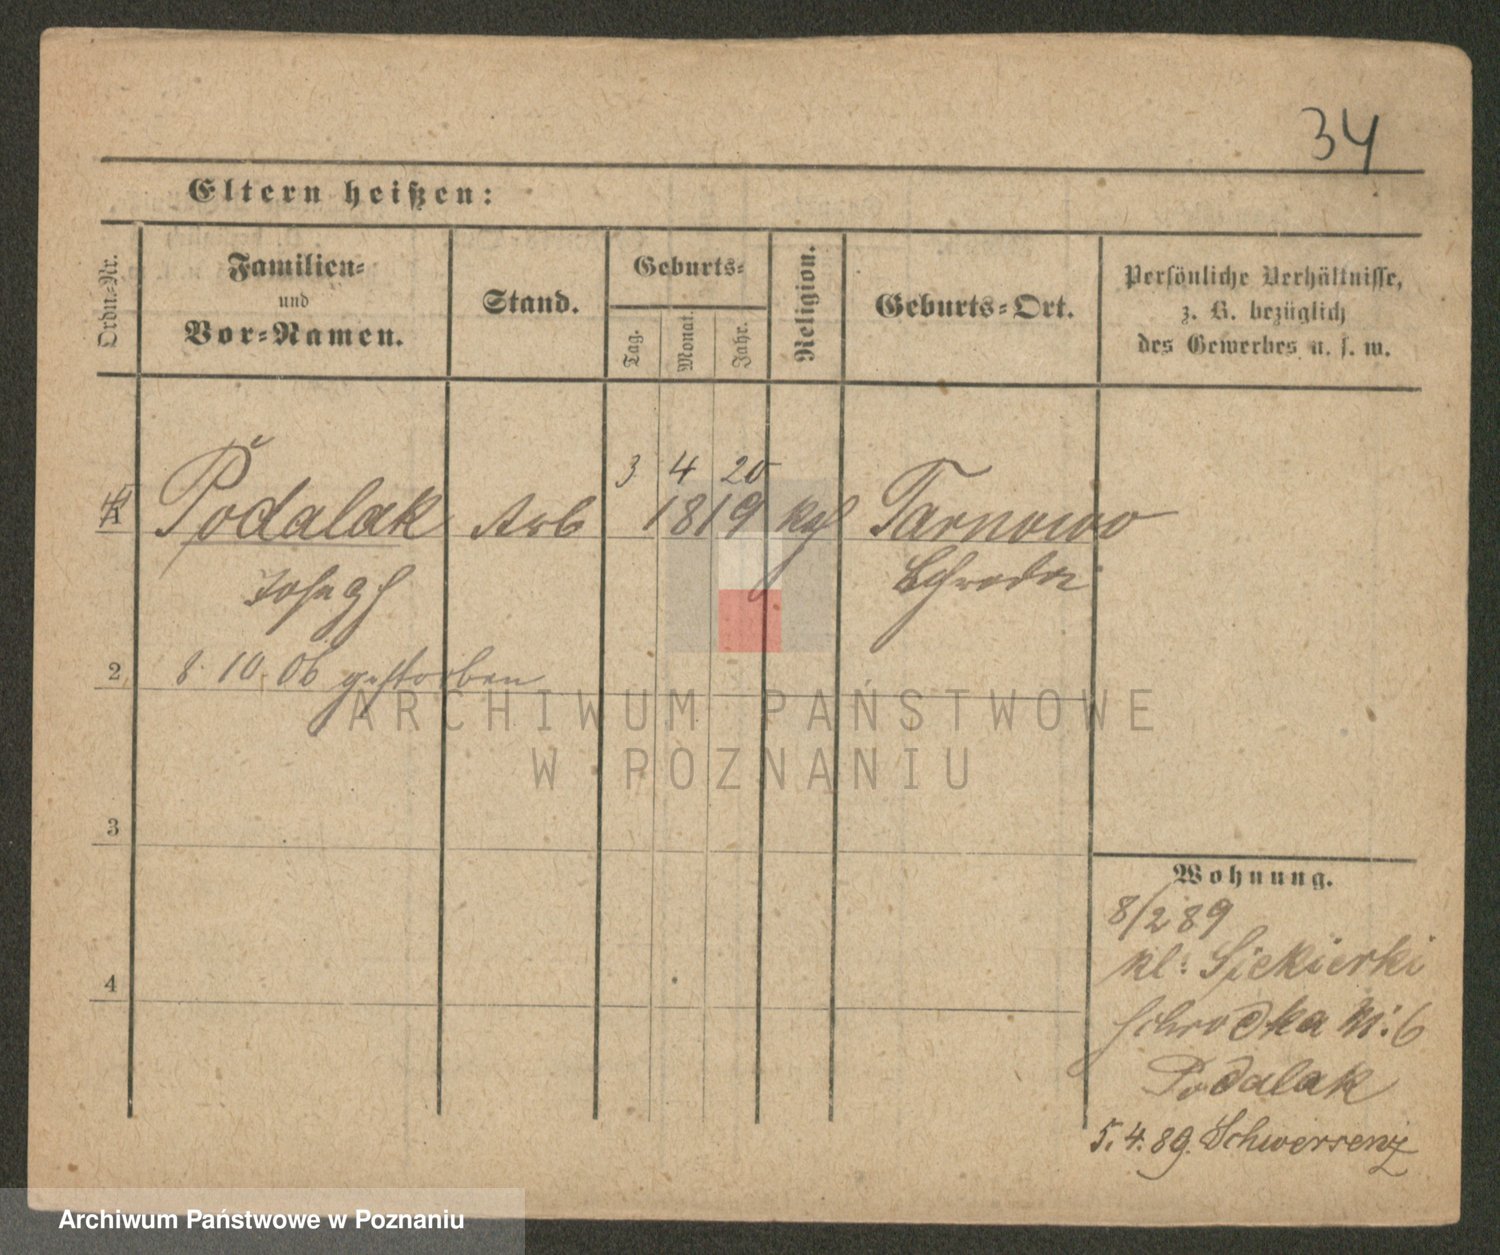 34
Eltern heißen:
Ordn.-Nr.
Familien-
und
Vor-Namen.
Stand.
Geburts-
Tag.
Monat.
Jahr.
Religion.
Geburts-Ort.
Persönliche Verhältnisse,
z. B. bezüglich
des Gewerbes u. s. w.
3 4 20
1 Podalak Arb 1819 Tarnowo
Joseph Schroda
2 8. 10. 06 gestorben
ARCHIWUM PAŃSTWOWE
W POZNANIU
3
4
Wohnung.
8/2 89
kl: Siekierki
Schrodka N: 6
Podalak
5.4.89. Schwersenz
Archiwum Państwowe w Poznaniu